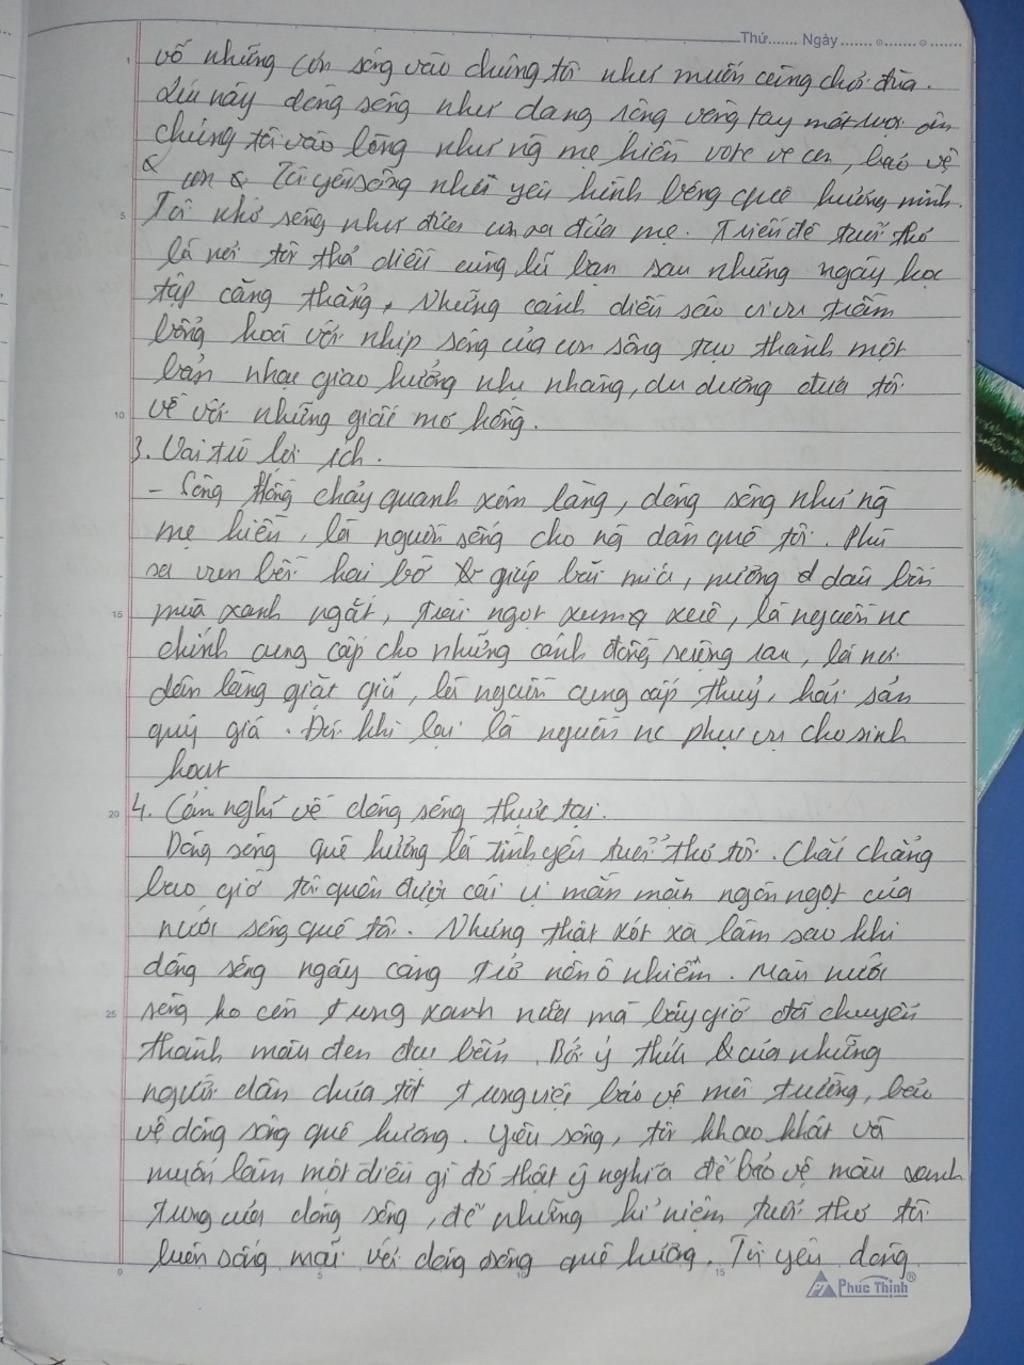 Thứ....... Ngày
vỗ những con sóng vào chúng tôi như muốn cùng chơi đùa.
Lúc này dòng sông như dang rộng vòng tay ôm
chúng tôi vào lòng như ng mẹ hiền vỗ về con, bảo vệ
con Tôi yêu sông như yêu hình bóng quê hương mình.
Tôi nhớ sông như đứa con xa đứa mẹ. Triền đê tuổi thơ
là nơi tôi thả diều cùng lũ bạn sau những ngày học
tập căng thẳng, những cánh diều sáo vi vu trầm
bổng hoà với nhịp sóng của con sông tạo thành một
bản nhạc giao hưởng nhẹ nhàng, du dương đưa tôi
về với những giấc mơ hồng.
3. Vai trò lợi ích.
- Sông Hồng chảy quanh xóm làng, dòng sông như ng
mẹ hiền, là nguồn sống cho ng dân quê tôi. Phù
sa ven bồi hai bờ giúp bãi mía, nương dâu bốn
mùa xanh ngắt, trái ngọt xum xuê, là nguồn nc
chính cung cấp cho những cánh đồng ruộng rau, là nơi
dân làng giặt giũ, là nguồn cung cấp thuỷ, hải sản
quý giá. Đôi khi lại là nguồn nc phục vụ cho sinh
hoạt
4. Cảm nghĩ về dòng sông thực tại.
Dòng sông quê hương là tình yêu tuổi thơ tôi. Chắc chẳng
bao giờ tôi quên được cái vị mằn mặn ngòn ngọt của
nước sông quê tôi. Nhưng thật xót xa làm sao khi
dòng sông ngày càng trở nên ô nhiễm. Màu nước
sông ko còn trong xanh nữa mà bây giờ đã chuyển
thành màu đen đục bẩn. Bởi ý thức của những
người dân chưa tốt trong việc bảo vệ môi trường, bảo
vệ dòng sông quê hương. Yêu sông, tôi khao khát và
muốn làm một điều gì đó thật ý nghĩa để bảo vệ màu xanh
trong của dòng sông, để những kỉ niệm tuổi thơ tôi
luôn sống mãi với dòng sông quê hương. Tôi yêu dòng
Phuc Thịnh